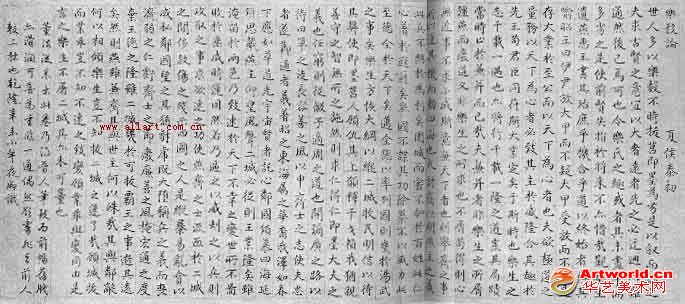 樂毅論 夏侯泰初
世人多以樂毅不時拔莒即墨為劣是以敘而論之
夫求古賢之意宜以大者遠者先之必迂迴而難
通然後已焉可也今樂氏之趣或者其未盡乎而
多劣之是使前賢失指於將來不亦惜哉觀樂生
遺燕惠王書其殆庶乎機合乎道以終始者與其
喻昭王曰伊尹放大甲而不疑大甲受放而不怨是
存大業於至公而以天下為心者也夫欲極道之
量務以天下為心者必致其主於盛隆合其趣於
先王苟君臣同符斯大業定矣于斯時也樂生之
志千載一遇也亦將行千載一隆之道豈其局蹟
當時止於兼并而已哉夫兼并者非樂生之所屑
彊燕而廢道又非樂生之所求也不屑苟得則心
無近事不求小成斯意兼天下者也則舉齊之事
所以運其機而動四海也夫討齊以明燕主之義
此兵不興於為利矣圍城而害不加於百姓此仁
心著於遐邇矣舉國不謀其功除暴不以威力此
至德全於天下矣邁全德以率列國則幾於湯武
之事矣樂生方恢大綱以縱二城牧民明信以待
其弊使即墨莒人顧仇其上願釋干戈賴我猶親
善守之智無所之施然則求仁得仁即墨大夫之
義也任窮則從微子適周之道也開彌廣之路以
待田單之徒長容善之風以申齊士之志使夫忠
者遂節通者義著昭之東海屬之華裔我澤如春
下應如草道光宇宙賢者託心鄰國傾慕四海延
頸思戴燕主仰望風聲二城必從則王業隆矣雖
淹留於兩邑乃致速於天下不幸之變世所不圖
敗於垂成時運固然若乃逼之以威劫之以兵則
攻取之事求欲速之功使燕齊之士流血於二城
之間侈殺傷之殘示四國之人是縱暴易亂貪以
成私鄰國望之其猶豺虎既大墮稱兵之義而喪
濟弱之仁虧齊士之節廢廉善之風掩宏通之度
棄王德之隆雖二城幾於可拔霸王之事逝其遠
矣然則燕雖兼齊其與世主何以殊哉其與鄰敵
何以相傾樂生豈不知拔二城之速了哉顧城拔
而業乖豈不知不速之致變顧業乖與變同由是
言之樂生不屑二城其亦未可量也
www.allart.com.cn
Artworld.cn
华艺美术网